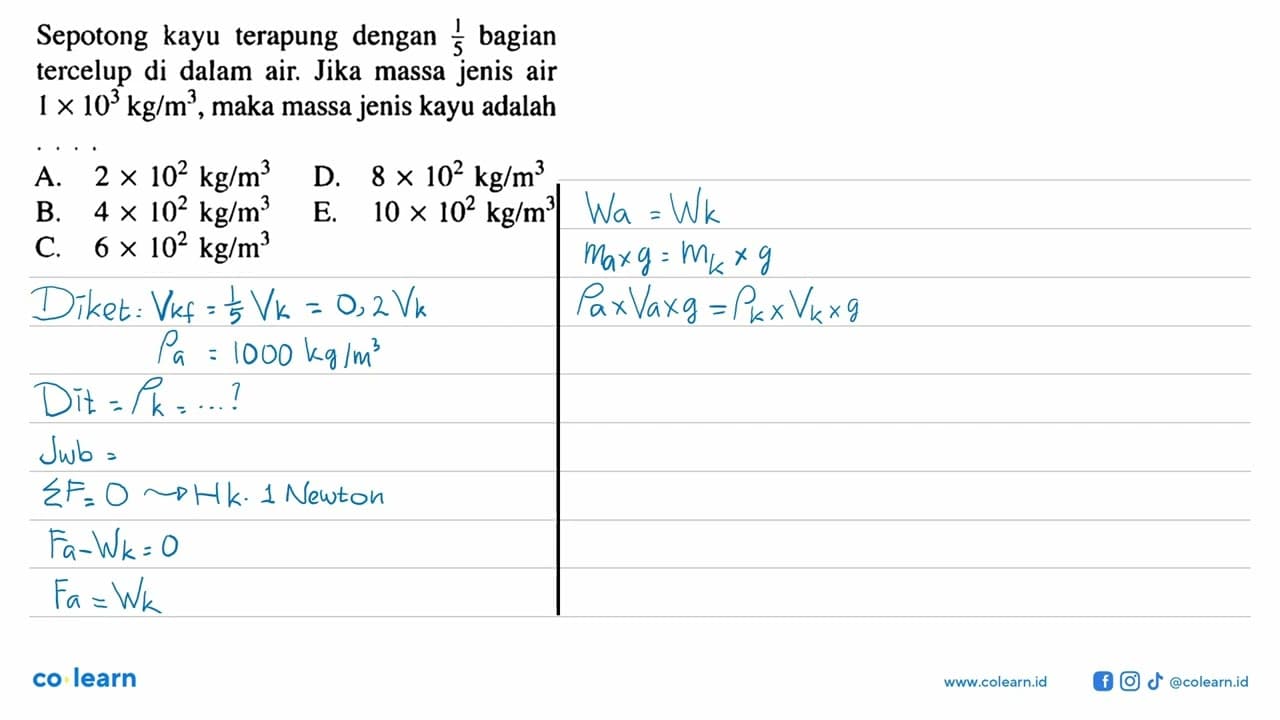 Sepotong kayu terapung dengan 1/5 bagian
tercelup di dalam air. Jika massa jenis air
1 × 10³ kg/m³, maka massa jenis kayu adalah
. . . .
A. 2 × 10² kg/m³ D. 8 × 10² kg/m³
B. 4 × 10² kg/m³ E. 10 × 10² kg/m³
C. 6 × 10² kg/m³
Diket: Vkf = 1/5 Vk = 0,2 Vk
ρa = 1000 kg/m³
Dit = ρk = ...?
Jwb =
ΣF = 0 ⤳ Hk. 1 Newton
Fa - Wk = 0
Fa = Wk
Wa = Wk
ma × g = mk × g
ρa × Va × g = ρk × Vk × g
co·learn
www.colearn.id
@colearn.id